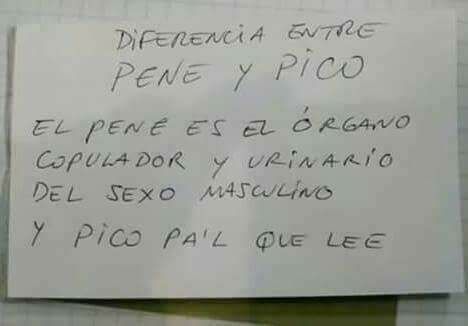 DIFERENCIA ENTRE
PENE Y PICO
EL PENE ES EL ÓRGANO
COPULADOR Y URINARIO
DEL SEXO MASCULINO
Y PICO PA'L QUE LEE